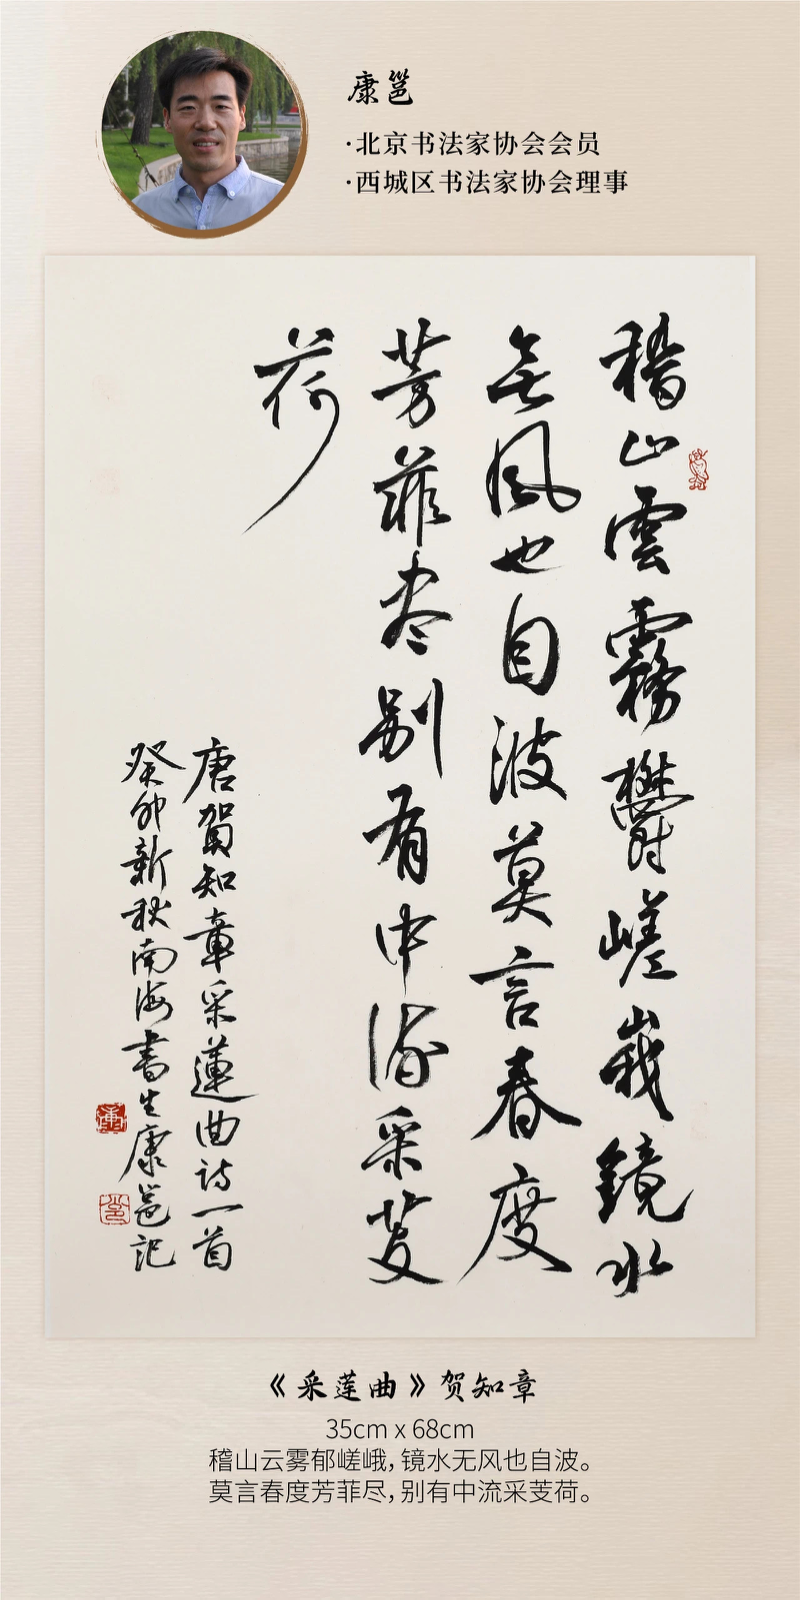 康筥
·北京书法家协会会员
·西城区书法家协会理事
稽山雲霧鬱嵯峩鏡水
無风也自波莫言春度
芳菲尽别有中流采芰
荷
唐賀知章采蓮曲诗一首
癸卯新秋南海書生康筥记
《采莲曲》贺知章
35cm x 68cm
稽山云雾郁嵯峨，镜水无风也自波。
莫言春度芳菲尽，别有中流采芰荷。